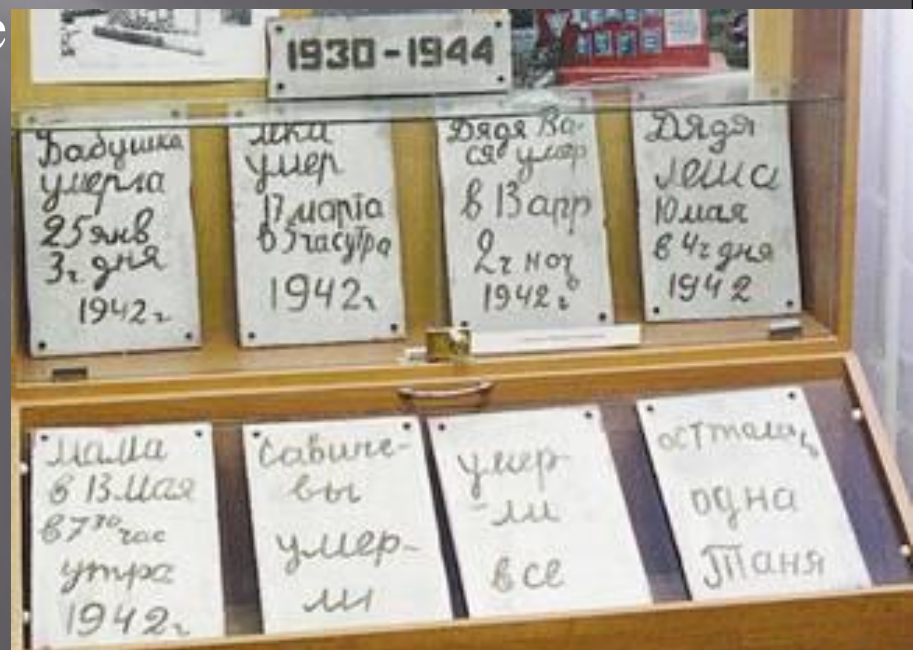 е
1930-1944
Бабушка
умерла
25 янв
3ч. дня
1942г
лка
умер
17 марта
в 5 часутра
1942г
Дядя Ва-
ся умер
в 13 апр
2ч ночь
1942г
Дядя
Леша
10 мая
в 4ч дня
1942
мама
в 13 мая
в 7³⁰ час
утра
1942г
Савиче-
вы
умер-
ли
умер
-ли
все
осталась
одна
Таня